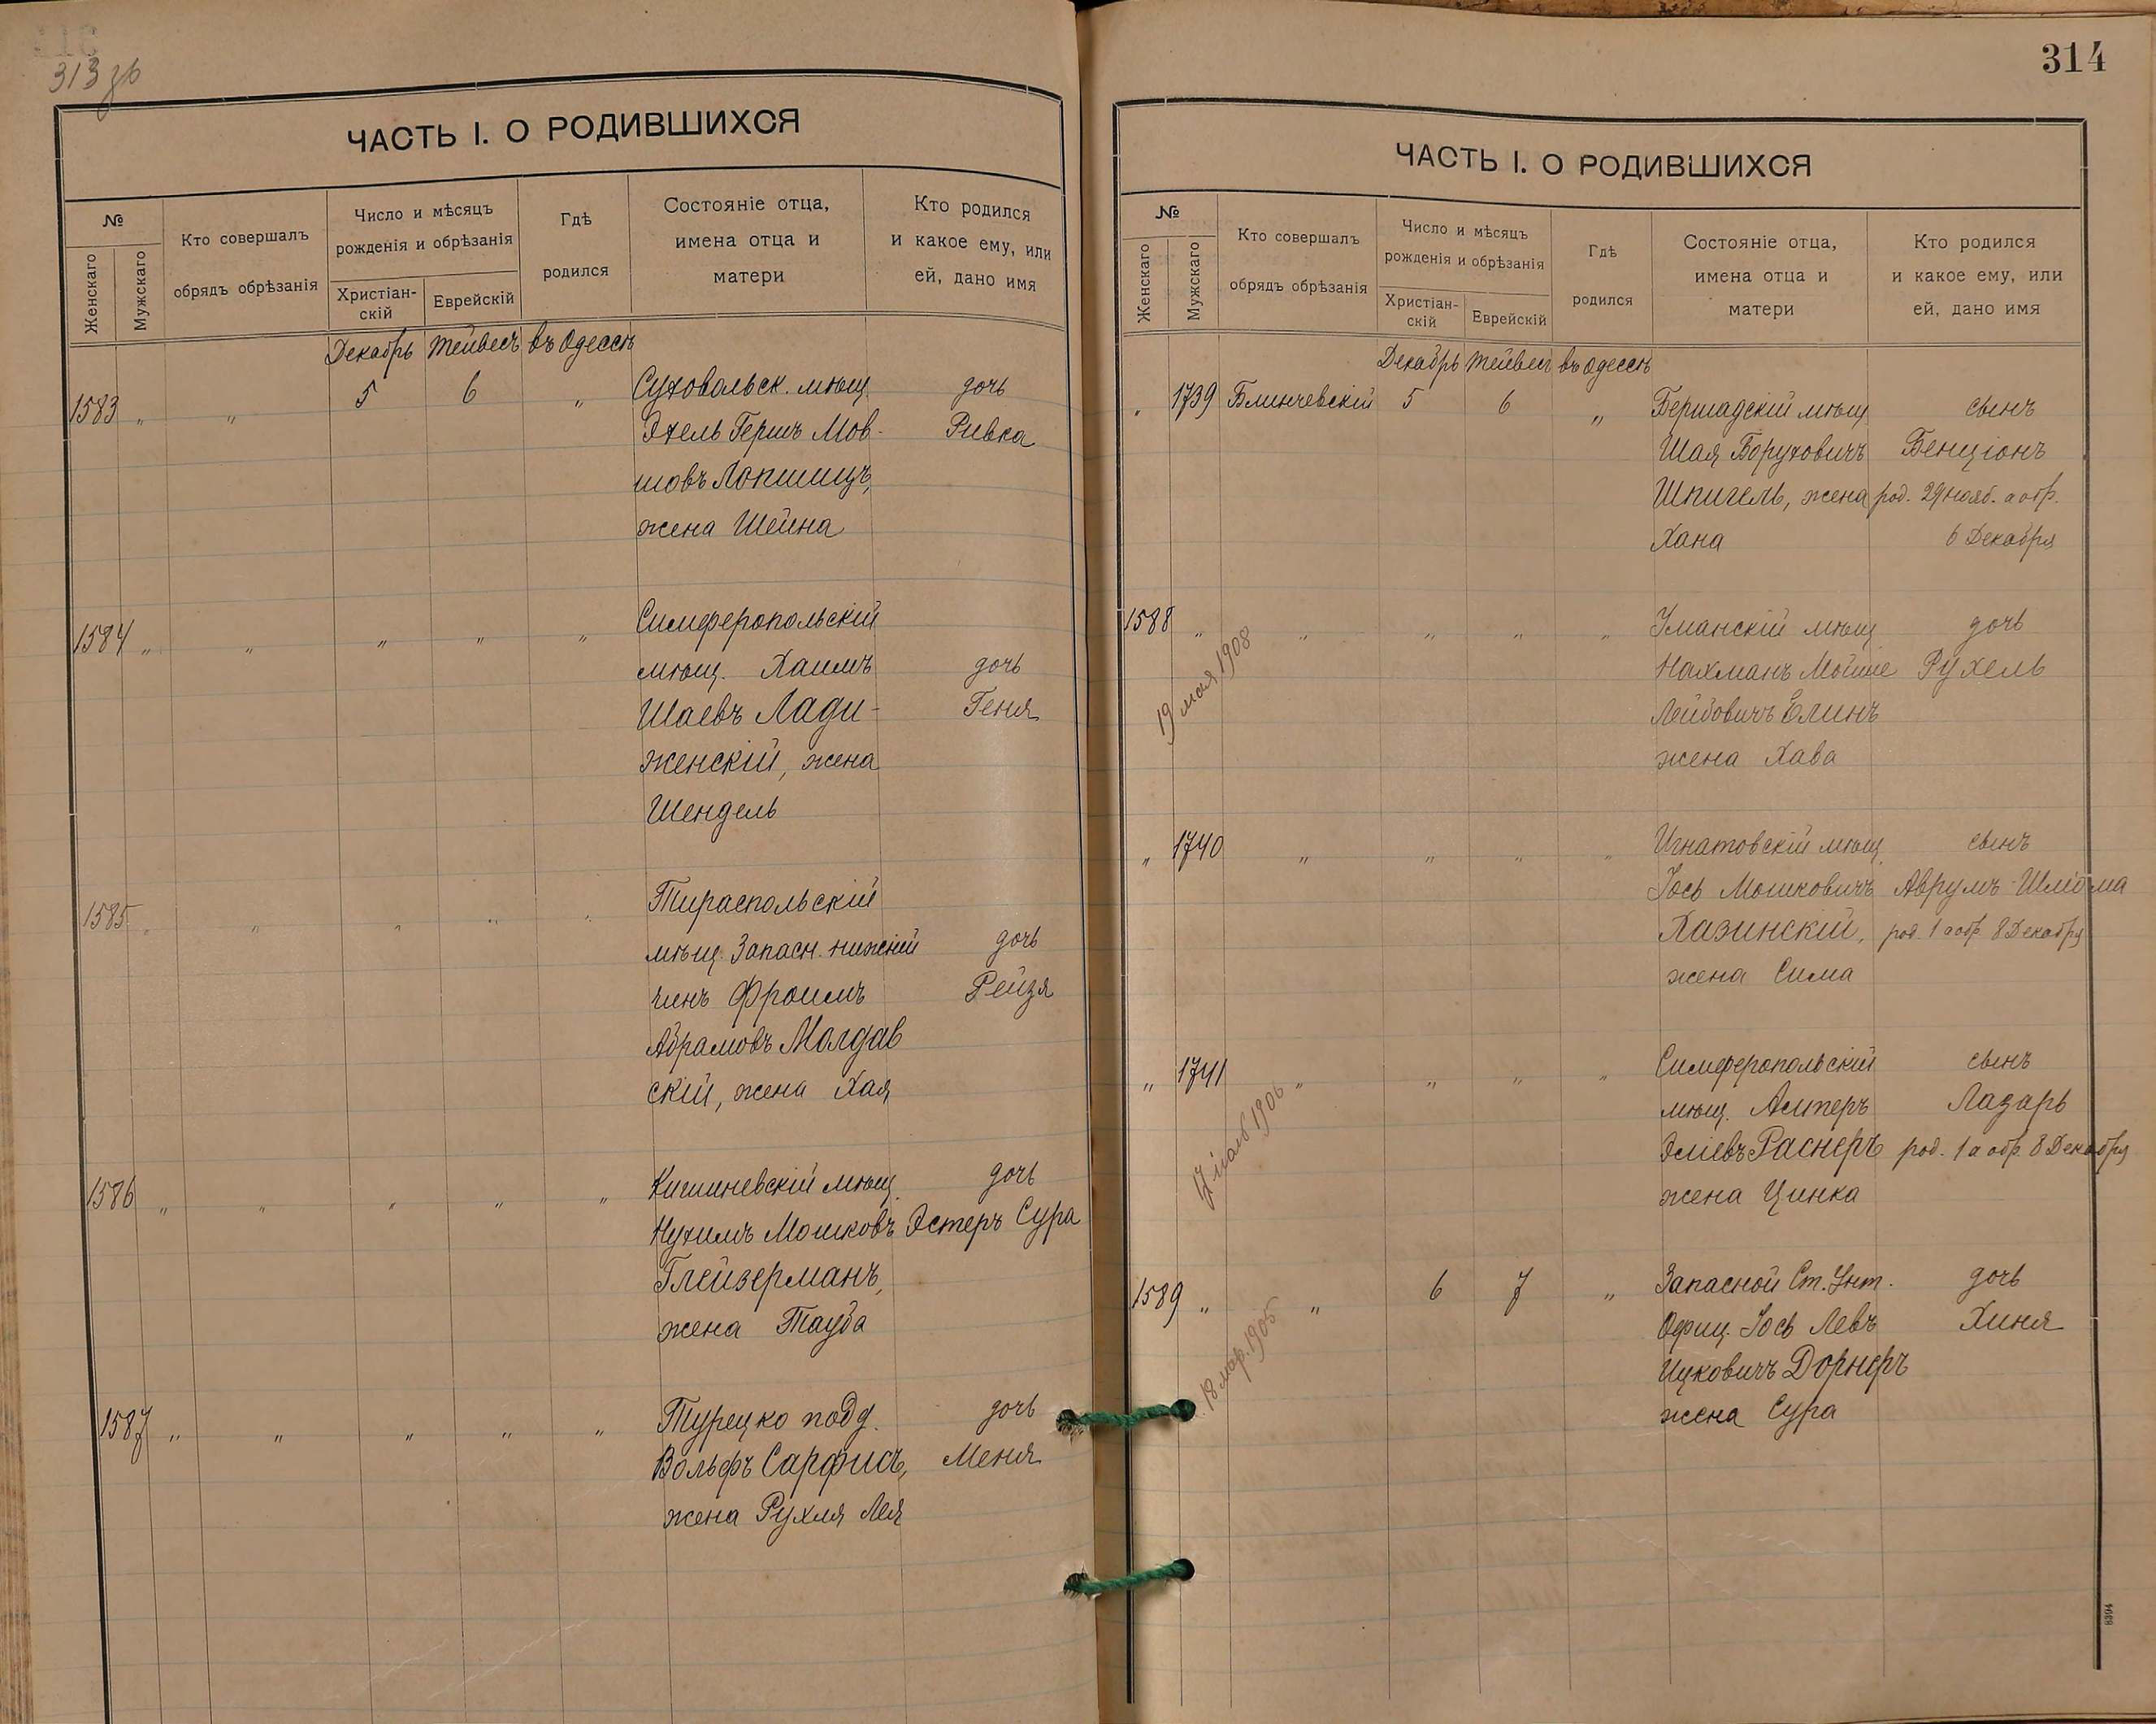 313 зв
ЧАСТЬ I. О РОДИВШИХСЯ
№
Женскаго
Мужскаго
Кто совершалъ
обрядъ обрѣзанія
Число и мѣсяцъ
рожденія и обрѣзанія
Христіан-
скій
Еврейскій
Гдѣ
родился
Состояніе отца,
имена отца и
матери
Кто родился
и какое ему, или
ей, дано имя
Декабрь Тейвесъ въ Одессѣ
1583 „ „ 5 6 „ Суховольск. мѣщ. дочь
Эхель Гершъ Мов- Ривка
шовъ Лопшицъ,
жена Шейна
1584 „ „ „ „ „ Симферопольскій
мѣщ. Хаимъ дочь
Шаевъ Лади- Геня
женскій, жена
Шендель
1585 „ „ „ „ „ Тираспольскій
мѣщ. Запасн. нижній дочь
чинъ Фроимъ Рейзя
Абрамовъ Молдав
скій, жена Хая
1586 „ „ „ „ „ Кишиневскій мѣщ. дочь
Нухимъ Мошковъ Эстеръ Сура
Глейзерманъ,
жена Тауба
1587 „ „ „ „ „ Турецко подд. дочь
Вольфъ Сарфисъ, Меня
жена Рухля Лея
314
ЧАСТЬ I. О РОДИВШИХСЯ
№
Женскаго
Мужскаго
Кто совершалъ
обрядъ обрѣзанія
Число и мѣсяцъ
рожденія и обрѣзанія
Христіан-
скій
Еврейскій
Гдѣ
родился
Состояніе отца,
имена отца и
матери
Кто родился
и какое ему, или
ей, дано имя
Декабрь Тейвесъ въ Одессѣ
„ 1739 Блинчевскій 5 6 „ Бершадскій мѣщ. сынъ
Шая Боруховичъ Бенціонъ
Шпигель, жена род. 29 нояб. а обр.
Хана 6 Декабря
1588 „ „ „ „ „ Уманскій мѣщ. дочь
19 мая 1908
Нахманъ Мойше Рухель
Лейбовичъ Елинъ
жена Хава
„ 1740 „ „ „ „ Игнатовскій мѣщ. сынъ
Іось Мошковичъ Аврумъ-Шлёма
Хазинскій, род. 1 а обр. 8 Декабря
жена Сима
„ 1741 „ „ „ „ Симферопольскій сынъ
мѣщ. Амперъ Лазарь
Эліевъ Раснеръ род. 1 а обр. 8 Декабря
жена Цинка
1906
1589 „ „ 6 7 „ Запасной Ст. Унт. дочь
18 мар. 1905
Офиц. Іось Левъ Хиня
Ицковичъ Дорнеръ
жена Сура
8394